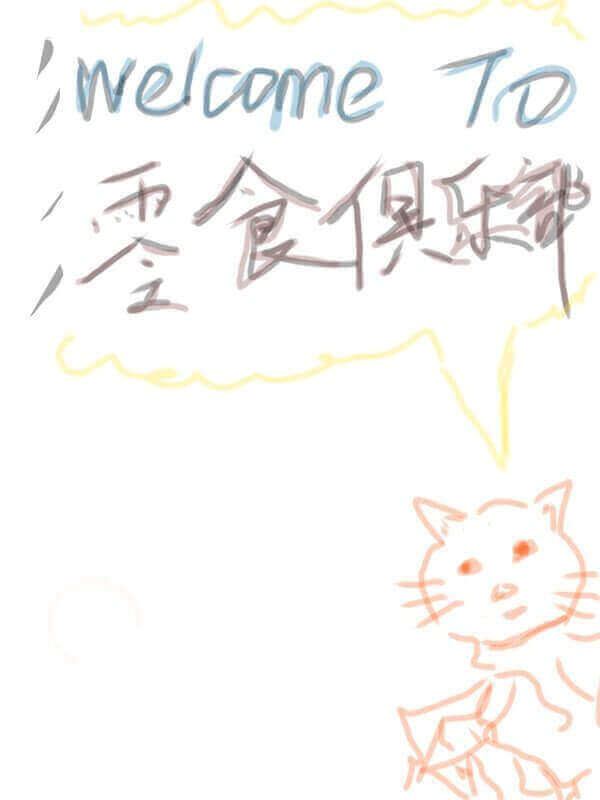 Welcome TO
零食俱乐部